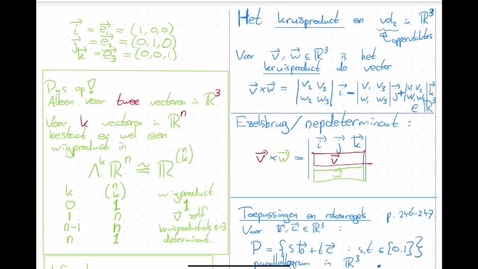 i⃗ = e⃗₁ = (1,0,0)
j⃗ = e⃗₂ = (0,1,0)
k⃗ = e⃗₃ = (0,0,1)
Pas op!
Alleen voor twee vectoren in ℝ³
Voor k vectoren in ℝⁿ
bestaat er wel een
wigproduct in
Λᵏ ℝⁿ ≅ ℝ^(n k)
k (n k) wigproduct
0 1 1
1 n v⃗ zelf
n-1 n kruisproduct als n=3
n 1 determinant.
Het kruisproduct en vol₂ in ℝ³
oppervlaktes
Voor v⃗, w⃗ ∈ ℝ³ is het
kruisproduct de vector
v⃗ × w⃗ = |v₂ v₃ w₂ w₃| i⃗ - |v₁ v₃ w₁ w₃| j⃗ + |v₁ v₂ w₁ w₂| k⃗
∈ ℝ³
Ezelsbrug/nepdeterminant:
i⃗ j⃗ k⃗
v⃗ × w⃗ = v⃗
w⃗
Toepassingen en rekenregels p. 246-247.
Voor b⃗, c⃗ ∈ ℝ³
P = {s b⃗ + t c⃗ : s,t ∈ [0,1]}
parallellogram in ℝ³